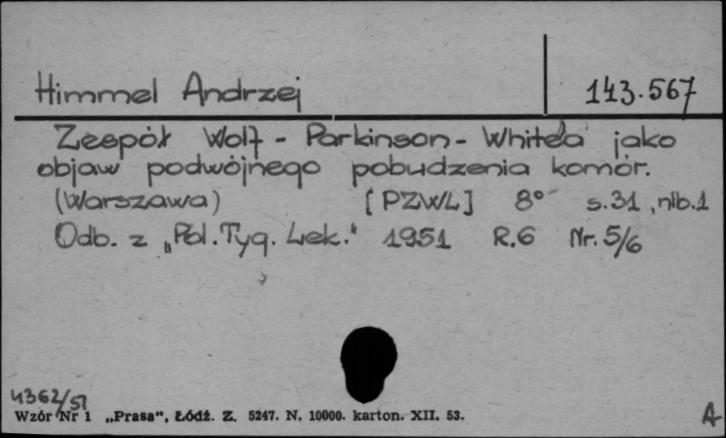 Himmel Andrzej
143.567
Zespół Wolf - Parkinson - White'a jako
objaw podwójnego pobudzenia komór.
(Warszawa) [PZWL] 8° s.31, nlb.1
Odb. z „Pol. Tyg. Lek." 1951 R.6 Nr. 5/6
4362/51
Wzór Nr 1 „Prasa", Łódź. Z. 5247. N. 10000. karton. XII. 53.
A